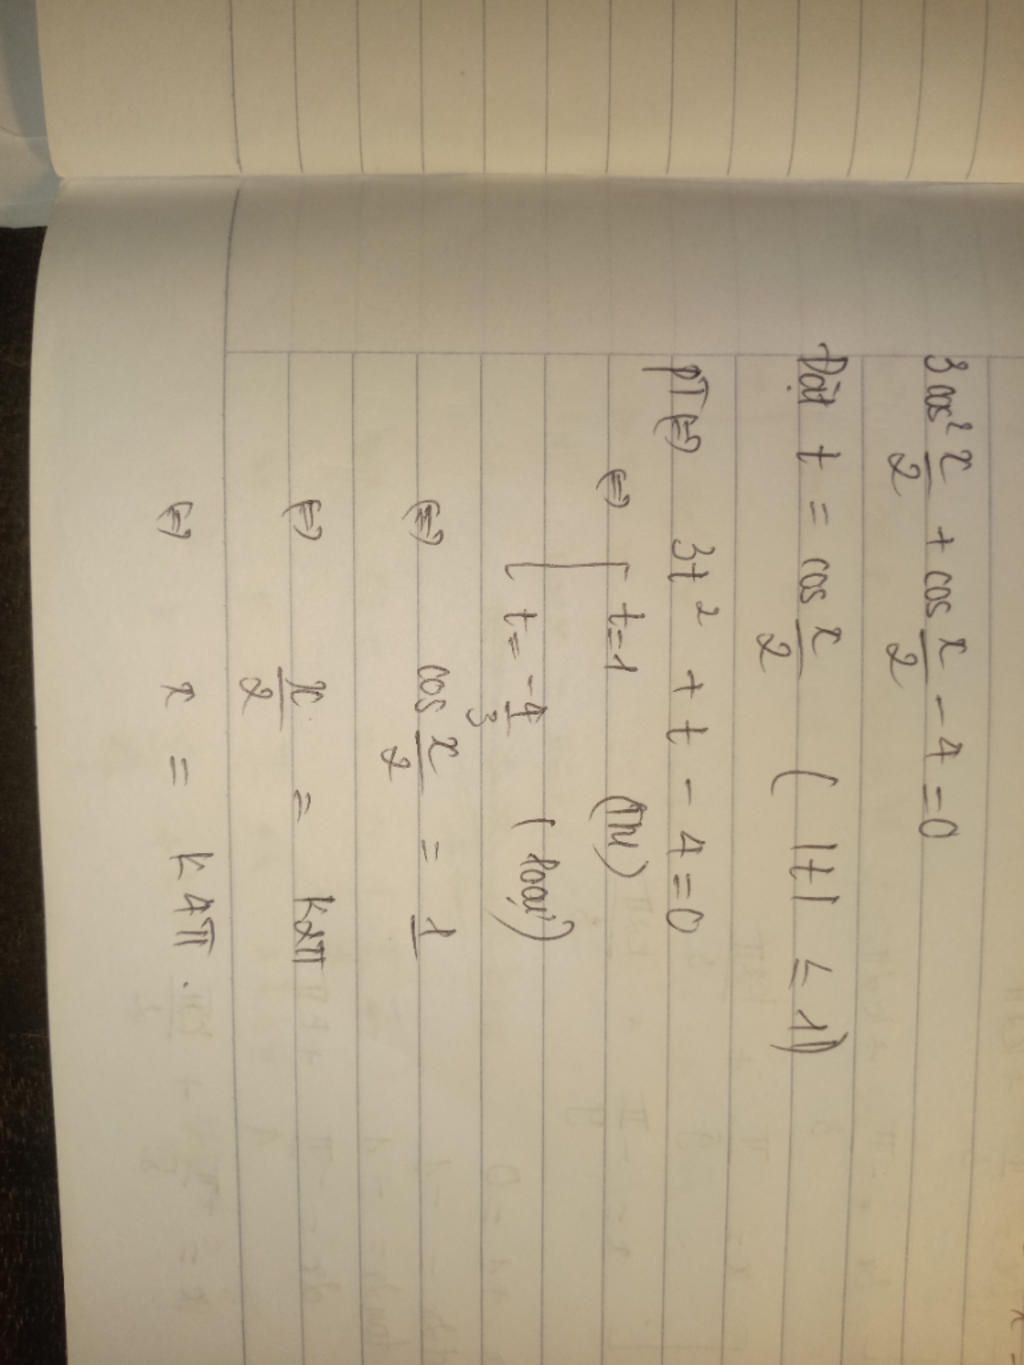 3cos² x/2 + cos x/2 - 4 = 0
Đặt t = cos x/2 ( |t| ≤ 1)
PT (=) 3t² + t - 4 = 0
(=) [ t = 1 (TM)
t = -4/3 (loại)
(=) cos x/2 = 1
(=) x/2 = k2π
(=) x = k4π.